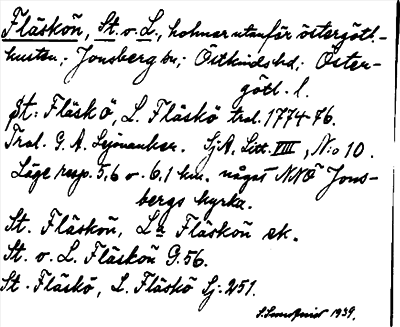 Fläskön, St. o. L., holmar utanför östergötl.-
kusten; Jonsberg sn; Östkinds hd; Öster-
götl. l.
St. Fläskö, L. Fläskö tral. 1774-76.
Tral. G. A. Leijonancker. SjA, Litt. VIII, N:o 10.
Läge resp. 5.6 o. 6.1 km. något NNÖ Jons-
bergs kyrka.
St. Fläskön, La Fläskön ek.
St. o. L. Fläskön G. 56.
St. Fläskö, L. Fläskö Sj: 251.
1939.